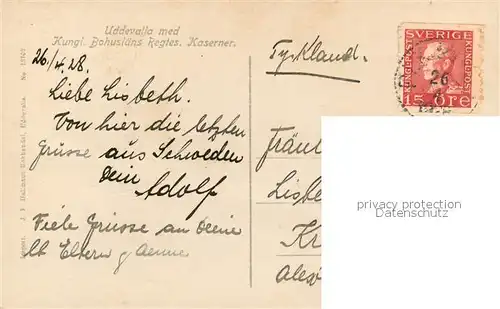 Uddevalla med
Kungl. Bohusläns Regtes. Kaserner.
26/4.28.
Liebe Lisbeth.
Von hier die letzten
Grüsse aus Schweden
Dein
Adolf
Viele Grüsse an deine
lb Eltern
Tyskland.
SVERIGE
KUNGL.POST
KUNGL.POST
15 ÖRE
26
4
Fräu
Lisbe
Kr
Alex
privacy protection
Datenschutz